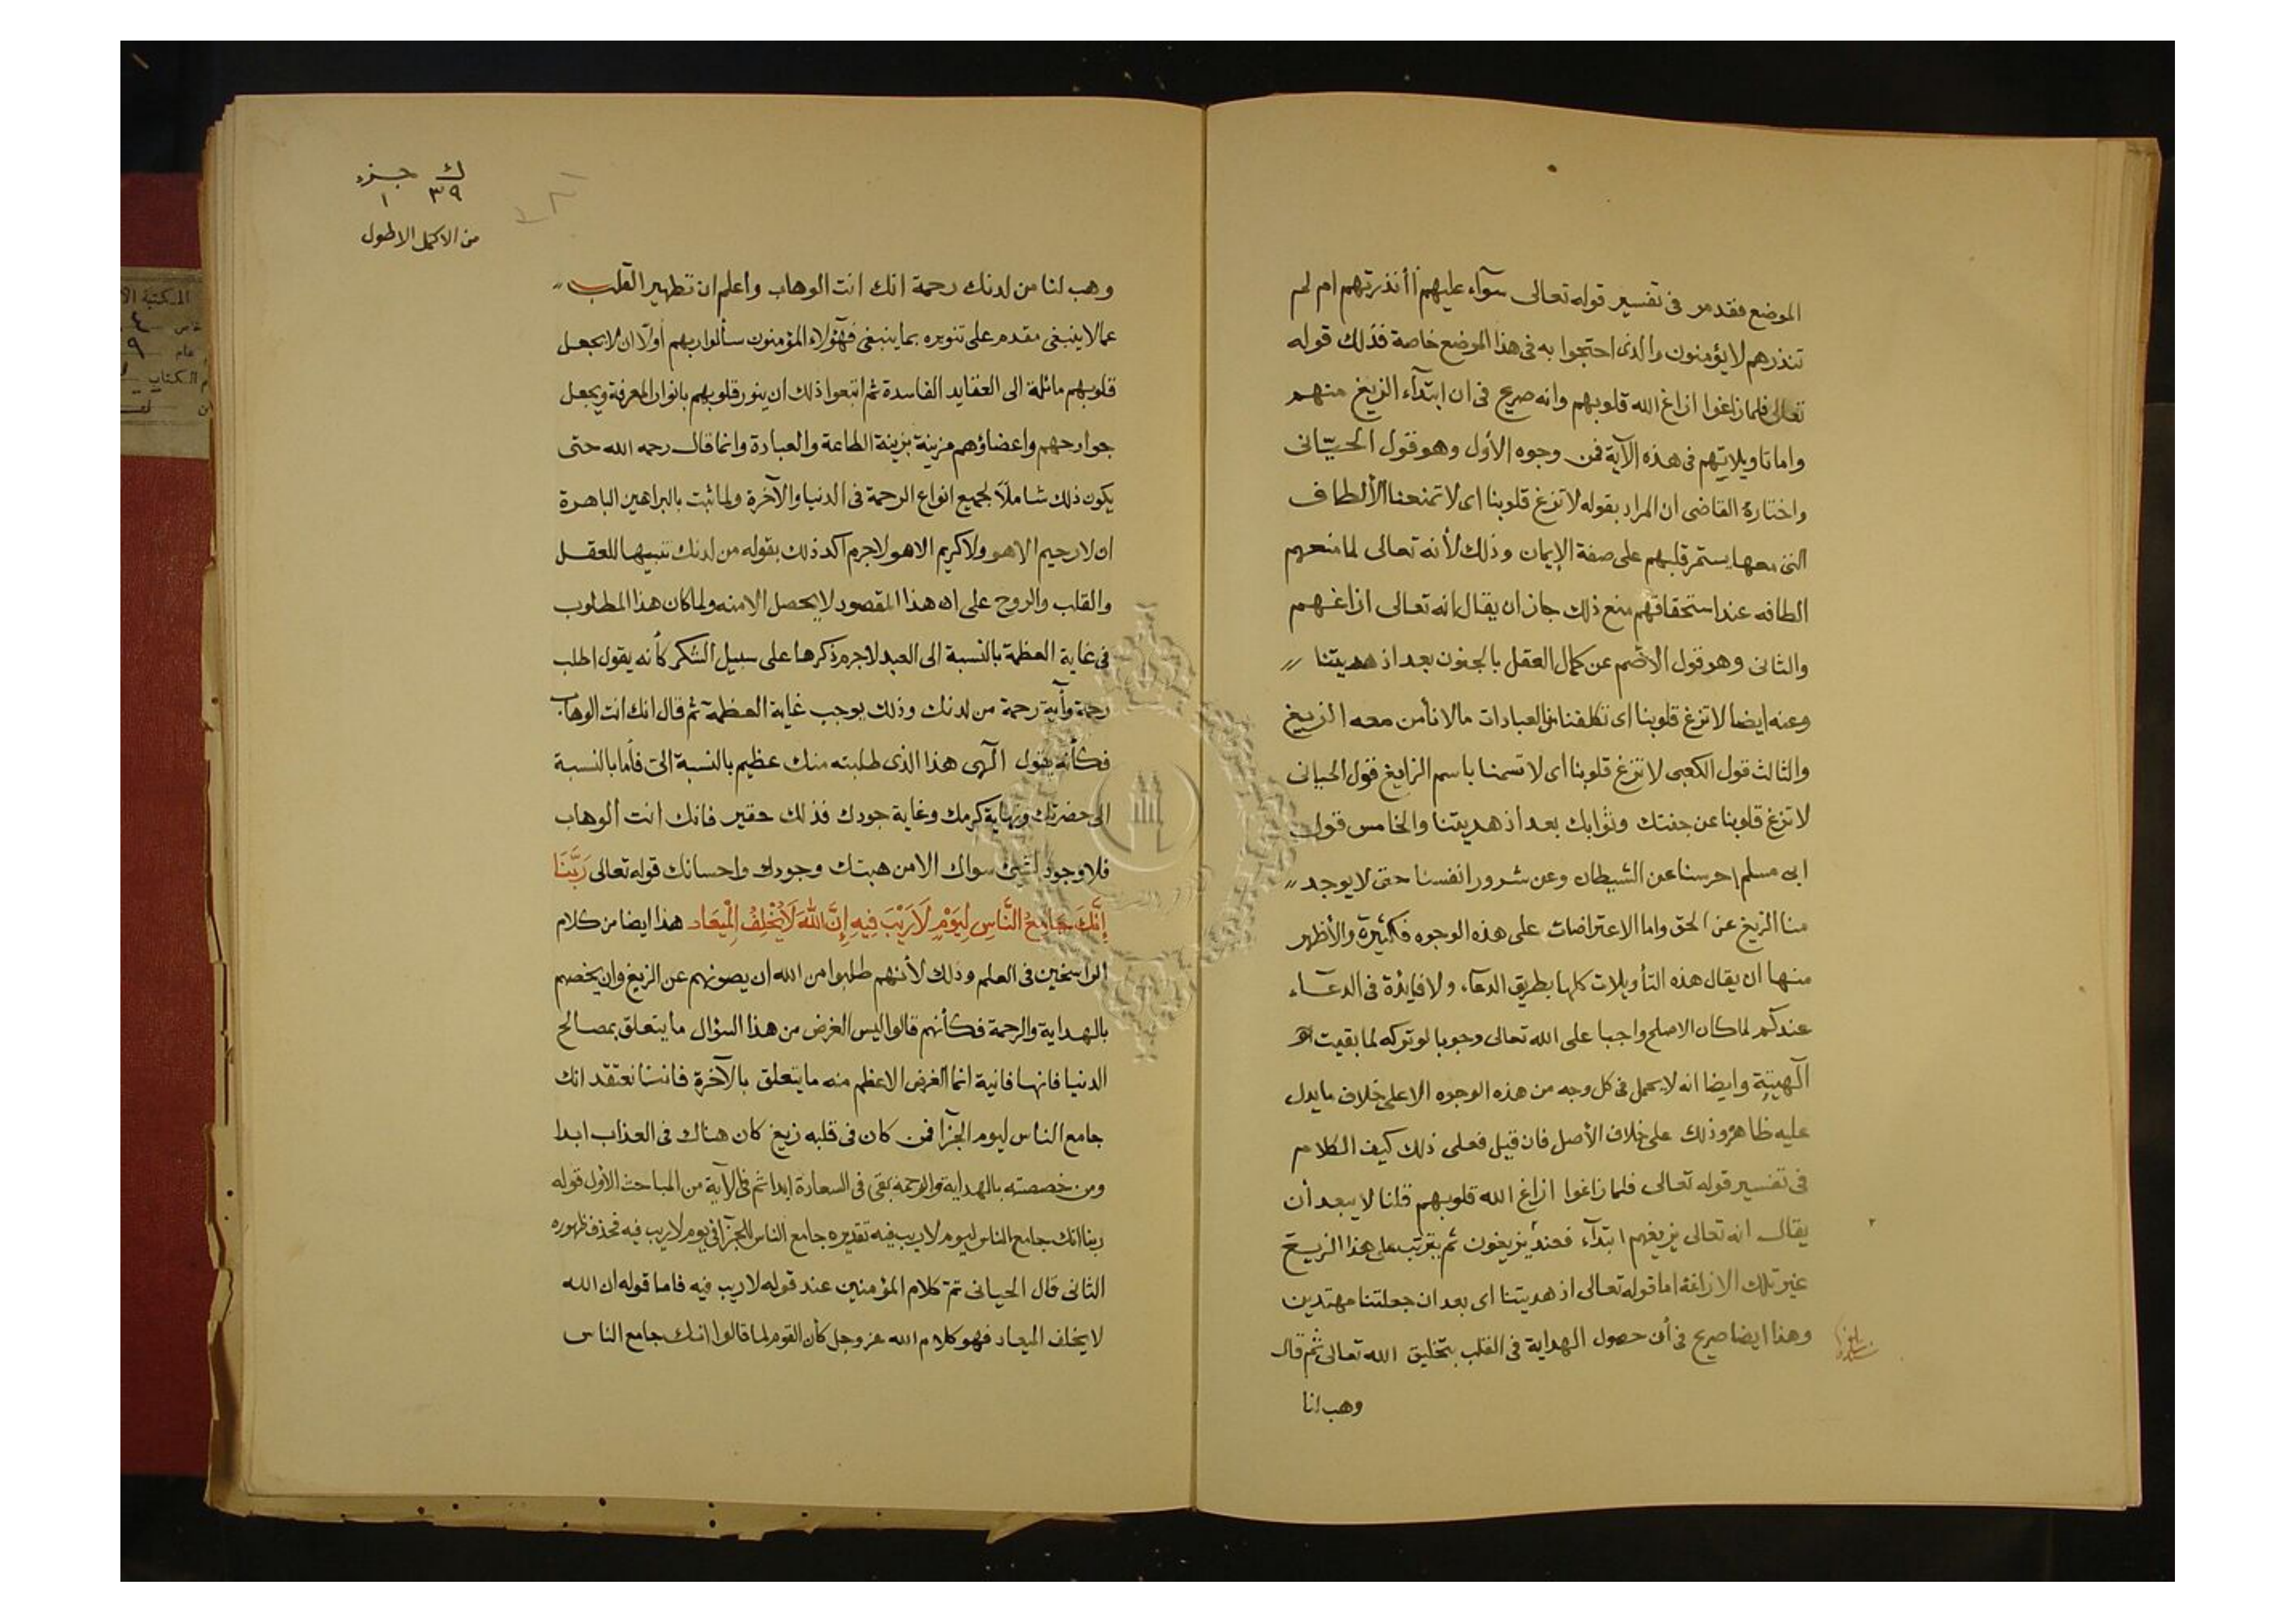 الموضع فقد مر فى تفسير قوله تعالى سوآء عليهم أأنذرتهم ام لم
تنذرهم لا يؤمنون والذى احتجوا به فى هذا الموضع خاصة فذلك قوله
تعالى فلما زاغوا ازاغ الله قلوبهم وانه صريح فى ان ابتدآء الزيغ منهم
واما تاويلاتهم فى هذه الآية فمن وجوه الأول وهو قول الحبّانى
واختاره القاضى ان المراد بقوله لا تزغ قلوبنا اى لا تمنعنا الألطاف
التى معها يستمر قلبهم على صفة الإيمان وذلك لأنه تعالى لما منعهم
الطافه عند استحقاقهم منع ذلك جاز ان يقال انه تعالى ازاغهم
والثانى وهو قول الأصم عن كمال العقل بالجنون بعد اذ هديتنا
وعنه ايضا لا تزغ قلوبنا اى تكلفنا من العبادات مالا نأمن معه الزيغ
والثالث قول الكعبى لا تزغ قلوبنا اى لا تسمنا باسم الزايغ قول الحبانى
لا تزغ قلوبنا عن جنتك وثوابك بعد أذ هديتنا والخامس قول
ابى مسلم احرسنا عن الشيطان وعن شرور انفسنا حتى لا يوجد
منا الزيغ عن الحق واما الاعتراضات على هذه الوجوه فكثيرة والأظهر
منها ان يقال هذه التأويلات كلها بطريق الدعآء ولا فايدة فى الدعآء
عندكم لما كان الاصلح واجبا على الله تعالى وجوبا لو تركه لما بقيت
آلهيته وايضا انه لا يحمل فى كل وجه من هذه الوجوه الا على خلاف ما يدل
عليه ظاهره وذلك على خلاف الأصل فان قيل فعلى ذلك كيف الكلام
فى تفسير قوله تعالى فلما زاغوا ازاغ الله قلوبهم قلنا لا يبعد أن
يقال انه تعالى يزيغهم ابتدآء فعند يزيغون ثم يترتب على هذا الزيغ
غير تلك الازاغة اما قوله تعالى اذ هديتنا اى بعد ان جعلتنا مهتدين
وهذا ايضا صريح فى أن حصول الهداية فى القلب بتخليق الله تعالى ثم قال
وهب لنا
ك جزء
٣٩ ١
من الاكمل الاطول
وهب لنا من لدنك رحمة انك انت الوهاب واعلم ان تطهير القلب
عما لا ينبغى مقدم على تنويره بما ينبغى فهؤلاء المؤمنون سألوا ربهم أولا ان لا يجعل
قلوبهم مائلة الى العقايد الفاسدة ثم اتبعوا ذلك ان ينور قلوبهم بانوار المعرفة ويجعل
جوارحهم واعضاؤهم مزينة بزينة الطاعة والعبادة وانما قال رحمه الله حتى
يكون ذلك شاملا لجميع انواع الرحمة فى الدنيا والآخرة ولما ثبت بالبراهين الباهرة
ان لا رحيم الا هو ولا كريم الا هو لاجرم اكد ذلك بقوله من لدنك تنبيها للعقل
والقلب والروح على ان هذا المقصود لا يحصل الا منه ولما كان هذا المطلوب
فى غاية العظمة بالنسبة الى العبد لاجرم ذكرها على سبيل الشكر كأنه يقول اطلب
رحمة وأية رحمة من لدنك وذلك يوجب غاية العظمة ثم قال انك انت الوهاب
فكأنه يقول آلهى هذا الذى طلبته منك عظيم بالنسبة الىّ فأما بالنسبة
الى حضرتك ونهاية كرمك وغاية جودك فذلك حقير فانك انت الوهاب
فلا وجود لشئ سواك الا من هبتك وجودك واحسانك قوله تعالى رَبَّنَا
إِنَّكَ جَامِعُ النَّاسِ لِيَوْمٍ لَارَيْبَ فِيهِ إِنَّ اللَّهَ لَا يُخْلِفُ الْمِيعَاد هذا ايضا من كلام
الراسخين فى العلم وذلك لأنهم طلبوا من الله ان يصونهم عن الزيغ وان يخصهم
بالهداية والرحمة فكأنهم قالوا اليس الغرض من هذا السؤال ما يتعلق بمصالح
الدنيا فانها فانية انما الغرض الاعظم منه ما يتعلق بالآخرة فاننا نعتقد انك
جامع الناس ليوم الجزآ فمن كان فى قلبه زيغ كان هناك فى العذاب ابدا
ومن خصصته بالهداية والرحمة بقى فى السعادة ابدا ثم فى الآية من المباحث الأول قوله
ربنا انك جامع الناس ليوم لا ريب فيه تقديره جامع الناس للجزآ فى يوم لا ريب فيه فحذف ظهوره
الثانى قال الحبانى تم كلام المؤمنين عند قوله لا ريب فيه فاما قوله ان الله
لا يخلف الميعاد فهو كلام الله عز وجل كأن القوم لما قالوا انك جامع الناس